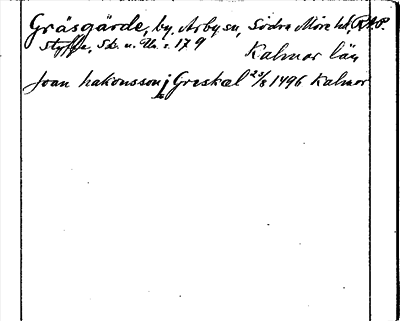 Gräsgärde, by, Arby sn, Södra Möre hd, R.A.P.
Styffe, Sk. u. Un. s. 179
Kalmar län
Joan hakonsson j Greskæl 23/8 1496 Kalmar